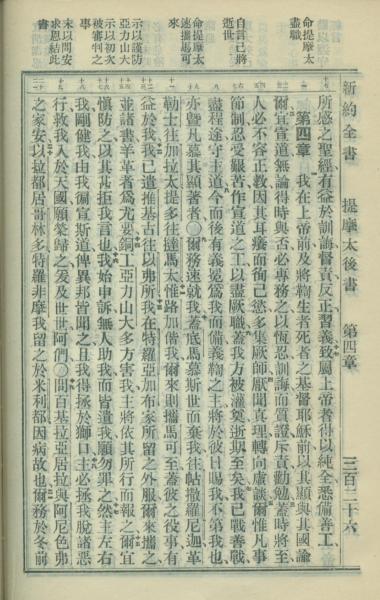 新約全書 提摩太後書 第四章 三百二十六
命提摩太
盡職
自言已將
逝世
命提摩太
速攜馬可
來
示以護防
亞力山大
示以初次
被審判之
事
末以問安
求恩結此
書
所感之聖經有益於訓誨督責反正習義致屬上帝者得以純全悉備善工
第四章 我在上帝前及將鞫生者死者之基督耶穌前以其顯與其國諭
爾宜宣道無論得時與否必專務之以恆忍訓誨而質證斥責勸勉蓋時將至
人必不容正教因其耳癢而徇己慾多集厥師厭聞真理轉向虛談爾惟凡事
節制忍受艱苦作宣道之工以盡厥職蓋我方被灌奠逝期至矣我已戰善戰
盡程途守主道今而後有義冕為我而備義鞫之主將於彼日賜我不第我也
亦暨凡慕其顯著者〇爾務速就我蓋底馬慕斯世而棄我往帖撒羅尼迦革
勒士往加拉太提多往撻馬太惟路加偕我爾來則攜馬可至蓋彼之役事有
益於我我已遣推基古往以弗所我在特羅亞加布家所留之外服爾來攜之
並諸書羊革者為尤要銅工亞力山大多方害我主將依其所行而報之爾宜
慎防之以其甚拒我言也我始申訴無人助我而皆遺我願勿罪之然主左右
我剛健我由我徧宣斯道俾異邦皆聞之且我得拯於獅口主必拯我脫諸惡
行救我入於天國願榮歸之爰及世世阿們〇問百基拉亞居拉與阿尼色弗
之家安以拉都居哥林多特羅非摩我留之於米利都因病故也爾務於冬前